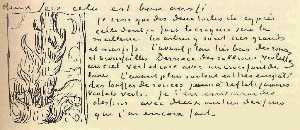 cela est bon aussi
Je crois que des deux toiles de cyprès
celle dont je fais le croquis sera la
meilleure les arbres y sont très grands
et massifs. L'avant plan très bas des ronces
et broussailles Derrière des collines violettes
un ciel vert et rose avec un croissant de
lune. L'avant plan surtout est très empâté
des touffes de ronces à reflets jaunes
violets verts. Je t'en enverrai des
dessins avec deux autres dessins
que j'ai encore fait